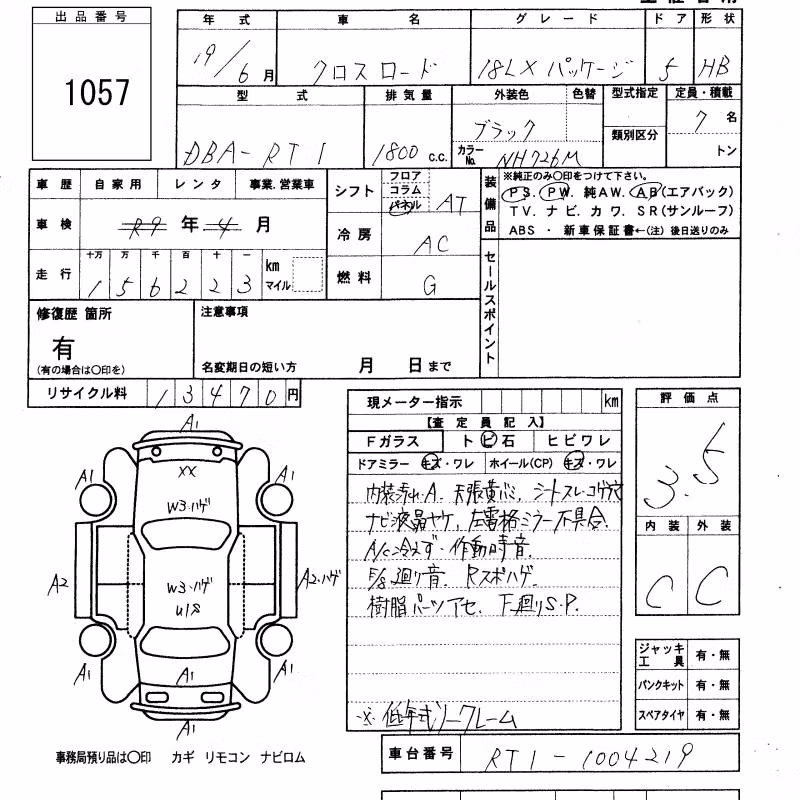 出品番号
1057
年式 車名 グレード ドア 形状
19/6月 クロスロード 18LX パッケージ 5 HB
型式 排気量 外装色 色替 型式指定 定員・積載
DBA-RT1 1800 c.c. ブラック 7名
カラーNo. NH726M 類別区分 トン
車歴 自家用 レンタ 事業.営業車
車検 R9年4月
走行 十万 万 千 百 十 一 km マイル
1 5 6 2 2 3
シフト フロア コラム パネル AT
冷房 AC
燃料 G
装備品
※純正のみ〇印をつけて下さい。
PS. PW. 純AW. AB(エアバック)
TV. ナビ. カワ. SR(サンルーフ)
ABS ・ 新車保証書←(注) 後日送りのみ
セールスポイント
修復歴 箇所
有
(有の場合は〇印を)
注意事項
名変期日の短い方 月 日まで
リサイクル料 13470円
現メーター指示 km
【査定員記入】
Fガラス トビ石 ヒビワレ
ドアミラー キズ・ワレ ホイール(CP) キズ・ワレ
内装汚れ・A. 天張黄バミ. シートスレ・コゲ穴
ナビ液晶ヤケ. 左電格ミラー不具合.
A/C冷えず・作動時音.
F/S廻り音. Rスポハゲ.
樹脂パーツアセ. 下廻りS.P.
※低年式ノークレーム
評価点
3.5
内装 外装
C C
ジャッキ工具 有・無
パンクキット 有・無
スペアタイヤ 有・無
A1
A1 XX A1
W3・ハゲ
A2 W3・ハゲ A2・ハゲ
U18
A1 A1 A1
A1
事務局預り品は〇印 カギ リモコン ナビロム
車台番号 RT1-1004219